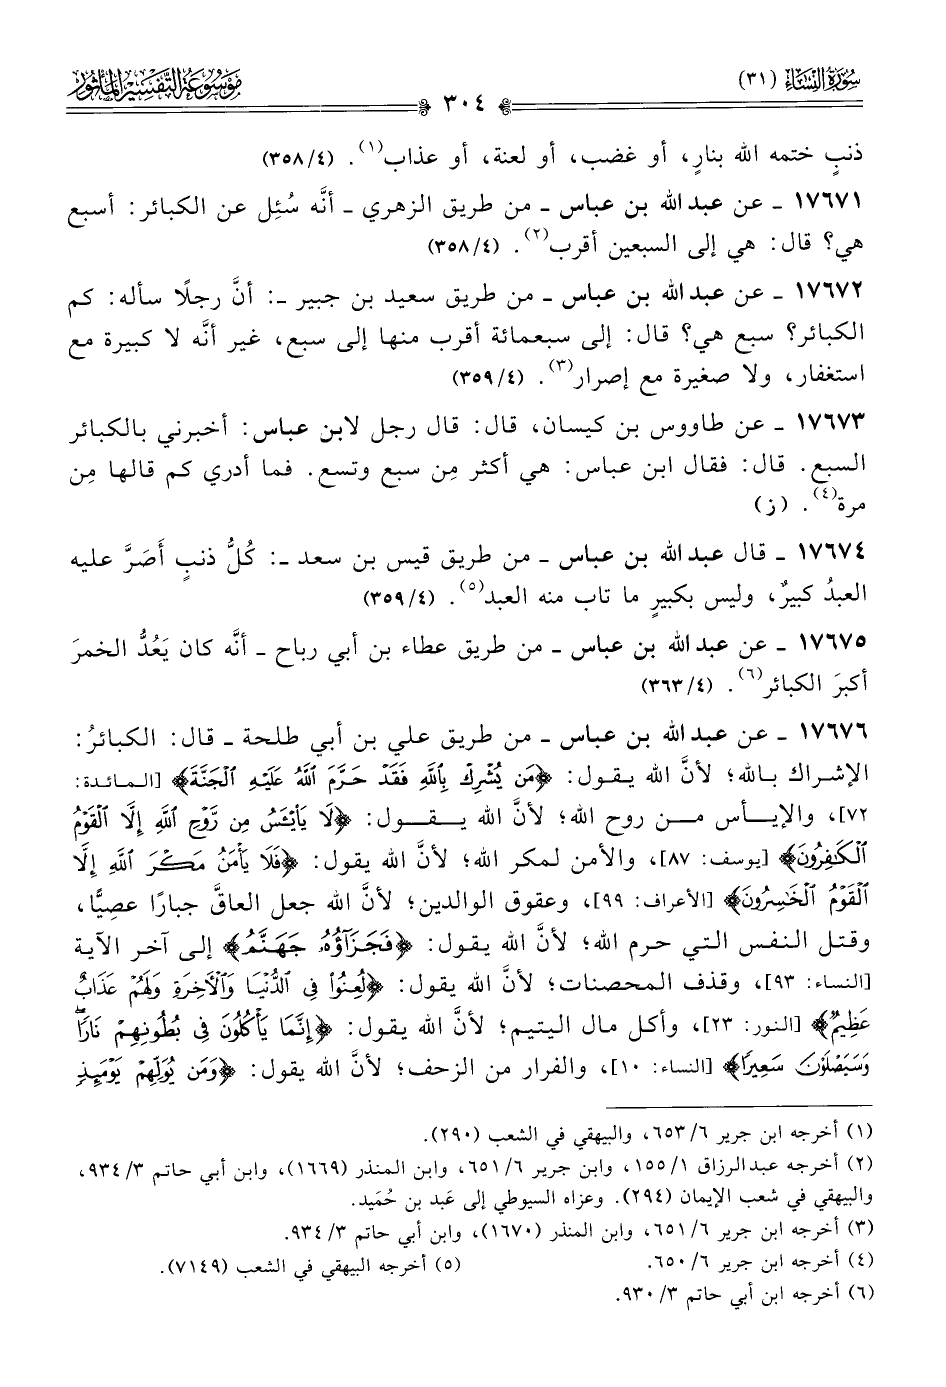 سُورَةُ النِّسَاء (٣١)
٣٠٤
مَوْسُوعَةُ التَّفْسِيرِ المَأْثُور
ذنبٍ ختمه الله بنارٍ، أو غضب، أو لعنة، أو عذاب(١). (٣٥٨/٤)
١٧٦٧١ ـ عن عبد الله بن عباس ـ من طريق الزهري ـ أنَّه سُئِل عن الكبائر: أسبع
هي؟ قال: هي إلى السبعين أقرب(٢). (٣٥٨/٤)
١٧٦٧٢ ـ عن عبد الله بن عباس ـ من طريق سعيد بن جبير ـ: أنَّ رجلًا سأله: كم
الكبائر؟ سبع هي؟ قال: إلى سبعمائة أقرب منها إلى سبع، غير أنَّه لا كبيرة مع
استغفار، ولا صغيرة مع إصرار(٣). (٣٥٩/٤)
١٧٦٧٣ ـ عن طاووس بن كيسان، قال: قال رجل لابن عباس: أخبرني بالكبائر
السبع. قال: فقال ابن عباس: هي أكثر مِن سبع وتسع. فما أدري كم قالها مِن
مرة(٤). (ز)
١٧٦٧٤ ـ قال عبد الله بن عباس ـ من طريق قيس بن سعد ـ: كُلُّ ذنبٍ أَصَرَّ عليه
العبدُ كبيرٌ، وليس بكبيرٍ ما تاب منه العبد(٥). (٣٥٩/٤)
١٧٦٧٥ ـ عن عبد الله بن عباس ـ من طريق عطاء بن أبي رباح ـ أنَّه كان يَعُدُّ الخمرَ
أكبرَ الكبائر(٦). (٣٦٣/٤)
١٧٦٧٦ ـ عن عبد الله بن عباس ـ من طريق علي بن أبي طلحة ـ قال: الكبائرُ:
الإشراك بالله؛ لأنَّ الله يقول: ﴿مَن يُشْرِكْ بِاللَّهِ فَقَدْ حَرَّمَ اللَّهُ عَلَيْهِ الْجَنَّةَ﴾ [المائدة:
٧٢]، والإيـأس مـن روح الله؛ لأنَّ الله يـقـول: ﴿لَا يَايْئَسُ مِن رَّوْحِ اللَّهِ إِلَّا الْقَوْمُ
الْكَافِرُونَ﴾ [يوسف: ٨٧]، والأمن لمكر الله؛ لأنَّ الله يقول: ﴿فَلَا يَأْمَنُ مَكْرَ اللَّهِ إِلَّا
الْقَوْمُ الْخَاسِرُونَ﴾ [الأعراف: ٩٩]، وعقوق الوالدين؛ لأنَّ الله جعل العاقَّ جبارًا عصيًّا،
وقتل النفس التي حرم الله؛ لأنَّ الله يقول: ﴿فَجَزَآؤُهُ جَهَنَّمُ﴾ إلى آخر الآية
[النساء: ٩٣]، وقذف المحصنات؛ لأنَّ الله يقول: ﴿لُعِنُوا فِي الدُّنْيَا وَالْآخِرَةِ وَلَهُمْ عَذَابٌ
عَظِيمٌ﴾ [النور: ٢٣]، وأكل مال اليتيم؛ لأنَّ الله يقول: ﴿إِنَّمَا يَأْكُلُونَ فِي بُطُونِهِمْ نَارًا
وَسَيَصْلَوْنَ سَعِيرًا﴾ [النساء: ١٠]، والفرار من الزحف؛ لأنَّ الله يقول: ﴿وَمَن يُوَلِّهِمْ يَوْمَئِذٍ
(١) أخرجه ابن جرير ٦٥٣/٦، والبيهقي في الشعب (٢٩٠).
(٢) أخرجه عبدالرزاق ١٥٥/١، وابن جرير ٦٥١/٦، وابن المنذر (١٦٦٩)، وابن أبي حاتم ٩٣٤/٣،
والبيهقي في شعب الإيمان (٢٩٤). وعزاه السيوطي إلى عَبد بن حُمَيد.
(٣) أخرجه ابن جرير ٦٥١/٦، وابن المنذر (١٦٧٠)، وابن أبي حاتم ٩٣٤/٣.
(٤) أخرجه ابن جرير ٦٥٠/٦. (٥) أخرجه البيهقي في الشعب (٧١٤٩).
(٦) أخرجه ابن أبي حاتم ٩٣٠/٣.